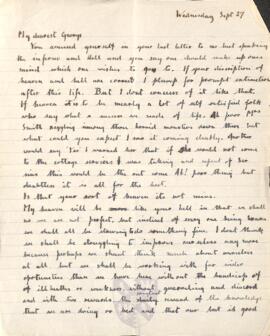 Wednesday Sept 27
My dearest George
You excused yourself in your last letter to me but speaking
the inferno and hell and you say one should make up ones
mind which one wishes to go to. If your description of
heaven and hell are correct I plump for prompt extinction
after this life. But I dont conceive of it like that.
If heaven is to be merely a lot of self satisfied folk
who say what a mess we made of life. Ah! poor Mrs
Smith nagging among those horrid monsters down there but
what could you expect I saw it coming clearly. Another
would say 'Yes' I warned her that if she would not come
to the cottage services I was taking and repent of her
sins this would be the out come Ah! poor thing but
doubtless it is all for the best.
Is that your sort of heaven its not mine.
My heaven will be more like your hell in that we shall
we are not perfect, but instead of every one being bores
we shall all be slaving to do something fine. I dont think
we shall be struggling to improve ourselves any more
because perhaps we shant think much about ourselves
at all but we shall be working with far wider
opportunities than we have here without the handicaps of
of ill health or weakness without quarrelling and discord
and with two rewards the daily reward of the knowledge
that we are doing our best and that our best is good